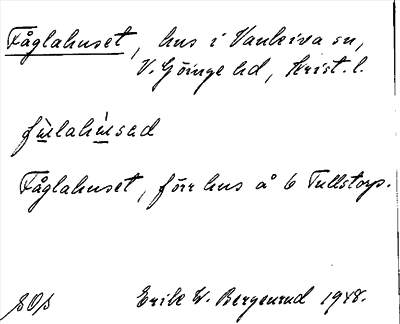 Fåglahuset, hus i Vankiva sn,
V. Göinge hd, Krist. l.
fùlahùsad
Fåglahuset, förr hus å 6 Tullstorp.
Erik W. Bergenrud 1948.